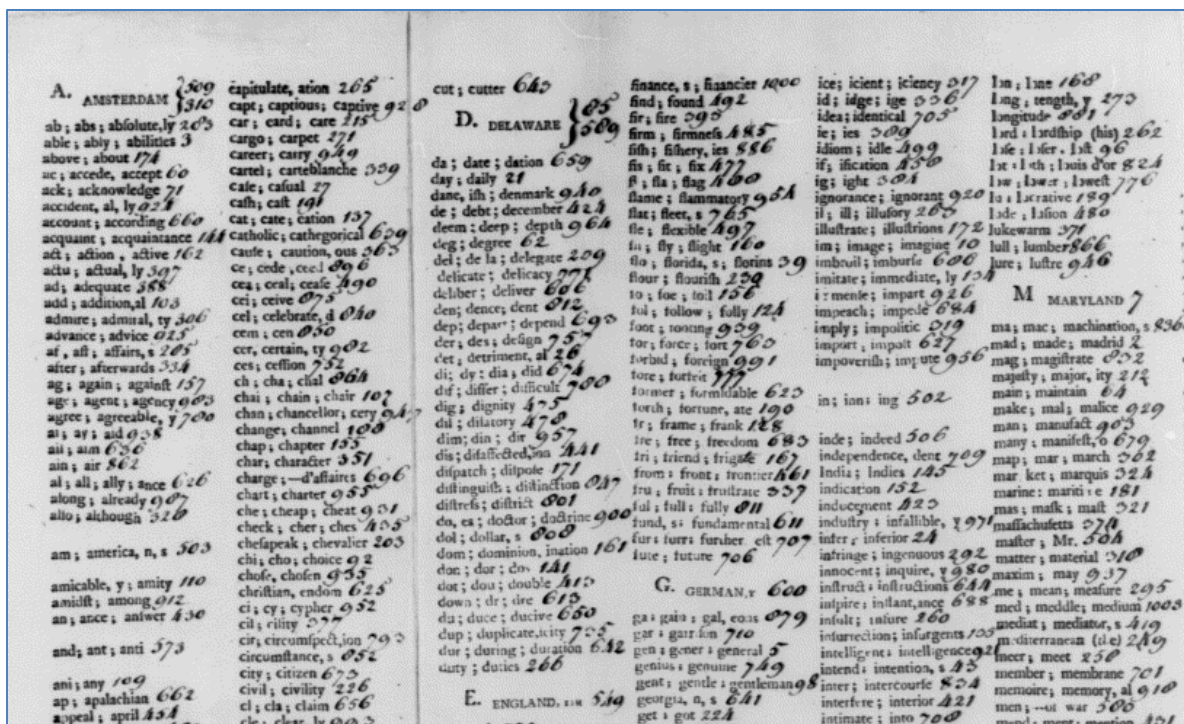 A. AMSTERDAM } 509
310
ab; abs; absolute,ly 283
able; ably; abilities 3
above; about 174
ac; accede, accept 60
ack; acknowledge 71
accident, al, ly 924
account; according 660
acquaint; acquaintance 144
act; action, active 162
actu; actual, ly 397
ad; adequate 388
add; addition,al 103
admire; admiral, ty 306
advance; advice 925
af, aft; affairs, s 205
after; afterwards 334
ag; again; against 157
age; agent; agency 983
agree; agreeable, y 780
ai; ay; aid 938
ail; aim 636
ain; air 862
al; all; ally; ance 626
along; already 987
alto; although 326
am; america, n, s 503
amicable, y; amity 110
amidst; among 912
an; ance; answer 430
and; ant; anti 573
ani; any 109
ap; apalachian 662
appeal; april 454
capitulate, ation 265
capt; captious; captive 928
car; card; care 215
cargo; carpet 271
career; carry 949
cartel; carteblanche 339
case; casual 27
cash; cast 191
cat; cate; cation 137
catholic; cathegorical 639
cause; caution, ous 363
ce; cede, ceed 896
cea; ceal; cease 490
cei; ceive 875
cel; celebrate, d 840
cem; cen 850
cer, certain, ty 982
ces; cession 752
ch; cha; chal 864
chai; chain; chair 107
chan; chancellor; cery 947
change; channel 100
chap; chapter 155
char; character 351
charge; —d'affaires 696
chart; charter 955
che; cheap; cheat 931
check; cher; ches 435
chesapeak; chevalier 203
chi; cho; choice 92
chose, chosen 935
christian, endom 625
ci; cy; cypher 952
cil; cility 377
cir; circumspect,ion 793
circumstance, s 852
city; citizen 673
civil; civility 226
cl; cla; claim 656
cle; clear, ly 993
cut; cutter 643
D. DELAWARE } 85
589
da; date; dation 659
day; daily 21
dane, ish; denmark 940
de; debt; december 424
deem; deep; depth 964
deg; degree 62
del; de la; delegate 209
delicate; delicacy 771
deliber; deliver 606
den; dence; dent 812
dep; depart; depend 693
der; des; design 757
det; detriment, al 26
di; dy; dia; did 674
dif; differ; difficult 780
dig; dignity 475
dil; dilatory 478
dim; din; dir 957
dis; disaffected,ion 441
dispatch; dispose 171
distinguish; distinction 847
distress; district 801
do, es; doctor; doctrine 900
dol; dollar, s 808
dom; dominion, ination 161
don; dor; dos 141
dot; dou; double 413
down; dr; dre 613
du; duce; ducive 650
dup; duplicate,icity 735
dur; during; duration 642
duty; duties 266
E. ENGLAND, 549
finance, s; financier 1000
find; found 492
fir; fire 393
firm; firmness 485
fish; fishery, ies 886
fis; fit; fix 477
fl; fla; flag 400
flame; flammatory 954
flat; fleet, s 765
fle; flexible 497
fli; fly; flight 160
flo; florida, s; florins 39
flour; flourish 239
fo; foe; foil 156
fol; follow; fully 124
foot; footing 939
for; force; fort 763
forbid; foreign 991
fore; forfeit 777
former; formidable 623
forth; fortune, ate 190
fr; frame; frank 128
fre; free; freedom 683
fri; friend; frigate 167
from; front; frontier 461
fru; fruit; frustrate 337
ful; full; fully 811
fund, s; fundamental 611
fur; furr; further, est 707
fute; future 706
G. GERMAN,Y 600
ga; gain; gal, eons 879
gar; garrison 710
gen; gener; general 5
genius; genuine 749
gent; gentle; gentleman 98
georgia, n, s 641
get; got 224
ice; icient; iciency 317
id; idge; ige 336
idea; identical 705
ie; ies 389
idiom; idle 499
if; ification 450
ig; ight 384
ignorance; ignorant 920
il; ill; illusory 263
illustrate; illustrions 172
im; image; imagine 10
imbroil; imburse 600
imitate; immediate, ly 134
immense; impart 926
impeach; impede 684
imply; impolitic 319
import; impost 627
impoverish; impute 956
in; ion; ing 502
inde; indeed 506
independence, dent 709
India; Indies 145
indication 152
inducement 423
industry; infallible, y 971
infer; inferior 24
infringe; ingenuous 292
innocent; inquire, y 980
instruct; instructions 644
inspire; instant,ance 688
insult; insure 260
insurrection; insurgents 135
intelligent; intelligence 921
intend; intention, s 43
inter; intercourse 834
interfere; interior 421
intimate; into 708
lon; lone 168
long; length, y 273
longitude 881
lord; lordship (his) 262
lose; loser; lost 96
lot; loth; louis d'or 824
low; lower; lowest 776
lu; lucrative 189
lude; lusion 480
lukewarm 371
lull; lumber 866
lure; lustre 946
M MARYLAND 7
ma; mac; machination, s 836
mad; made; madrid 2
mag; magistrate 832
majesty; major, ity 212
main; maintain 64
make; mal; malice 929
man; manufact 903
many; manifest,o 679
map; mar; march 362
mar ket; marquis 324
marine; maritime 181
mas; mask; mast 321
massachusetts 374
master; Mr. 504
matter; material 318
maxim; may 937
me; mean; measure 295
med; meddle; medium 1003
mediat; mediator, s 419
mediterranean (the) 249
meer; meet 250
member; membrane 701
memoire; memory, al 910
men; —of war 505
mend; ment; mention 431